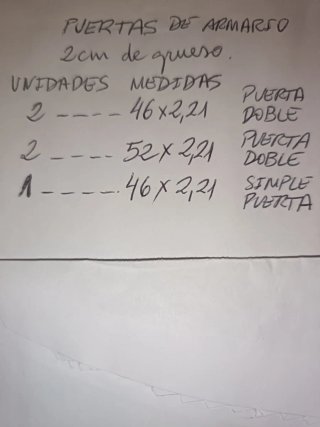 PUERTAS DE ARMARIO
2cm de grueso.
UNIDADES MEDIDAS
2 ---- 46 x 2,21 PUERTA DOBLE
2 ---- 52 x 2,21 PUERTA DOBLE
1 ---- 46 x 2,21 SIMPLE PUERTA